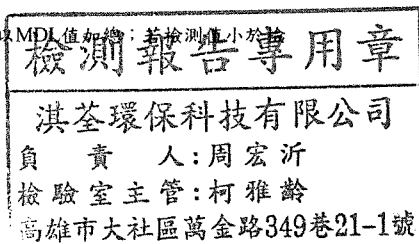 以MDL值加總；若檢測值小於
檢測報告專用章
淇荃環保科技有限公司
負責人：周宏沂
檢驗室主管：柯雅齡
高雄市大社區萬金路349巷21-1號